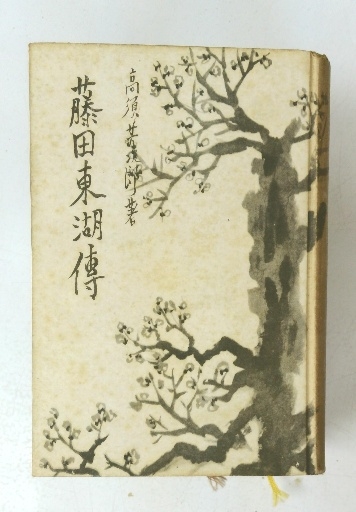 藤田東湖傳
高須芳次郎著